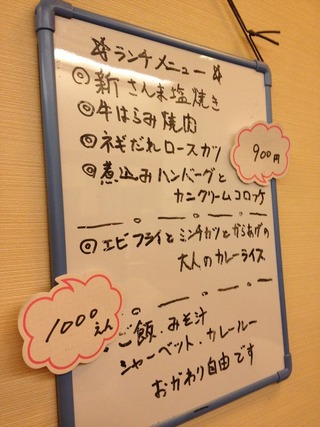 ☆ランチメニュー☆
◎新さんま塩焼き
◎牛はらみ焼肉
◎ネギだれロースカツ
◎煮込みハンバーグと
カニクリームコロッケ
900円
◎エビフライとミンチカツとからあげの
大人のカレーライス
1000えん
ご飯・みそ汁
シャーベット・カレールー
おかわり自由です